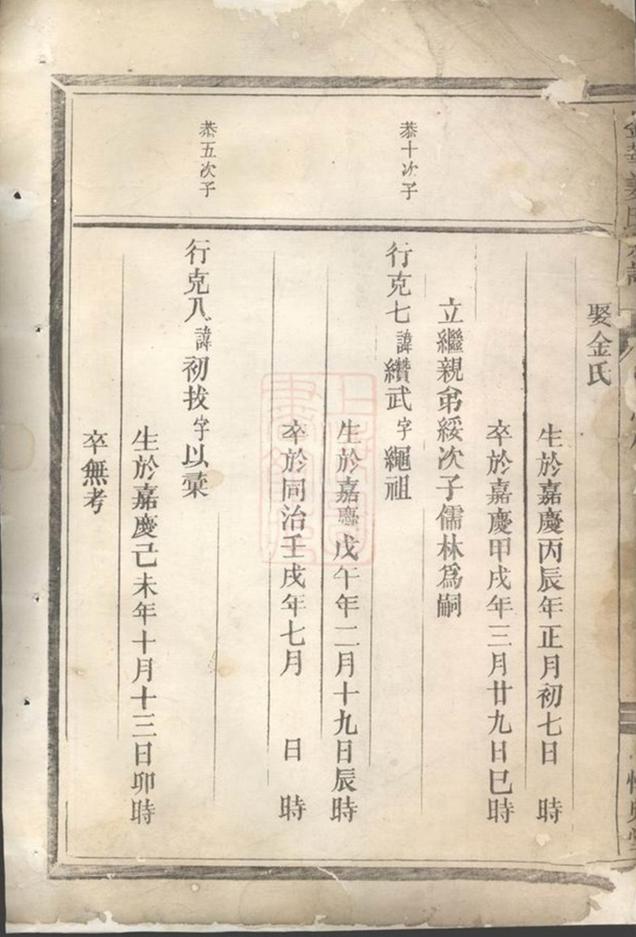 娶金氏
生於嘉慶丙辰年正月初七日 時
卒於嘉慶甲戌年三月廿九日巳時
立繼親弟綏次子儒林為嗣
恭十次子
行克七諱纘武字繩祖
生於嘉慶戊午年二月十九日辰時
卒於同治壬戌年七月 日 時
恭五次子
行克八諱初拔字以彙
生於嘉慶己未年十月十三日卯時
卒無考